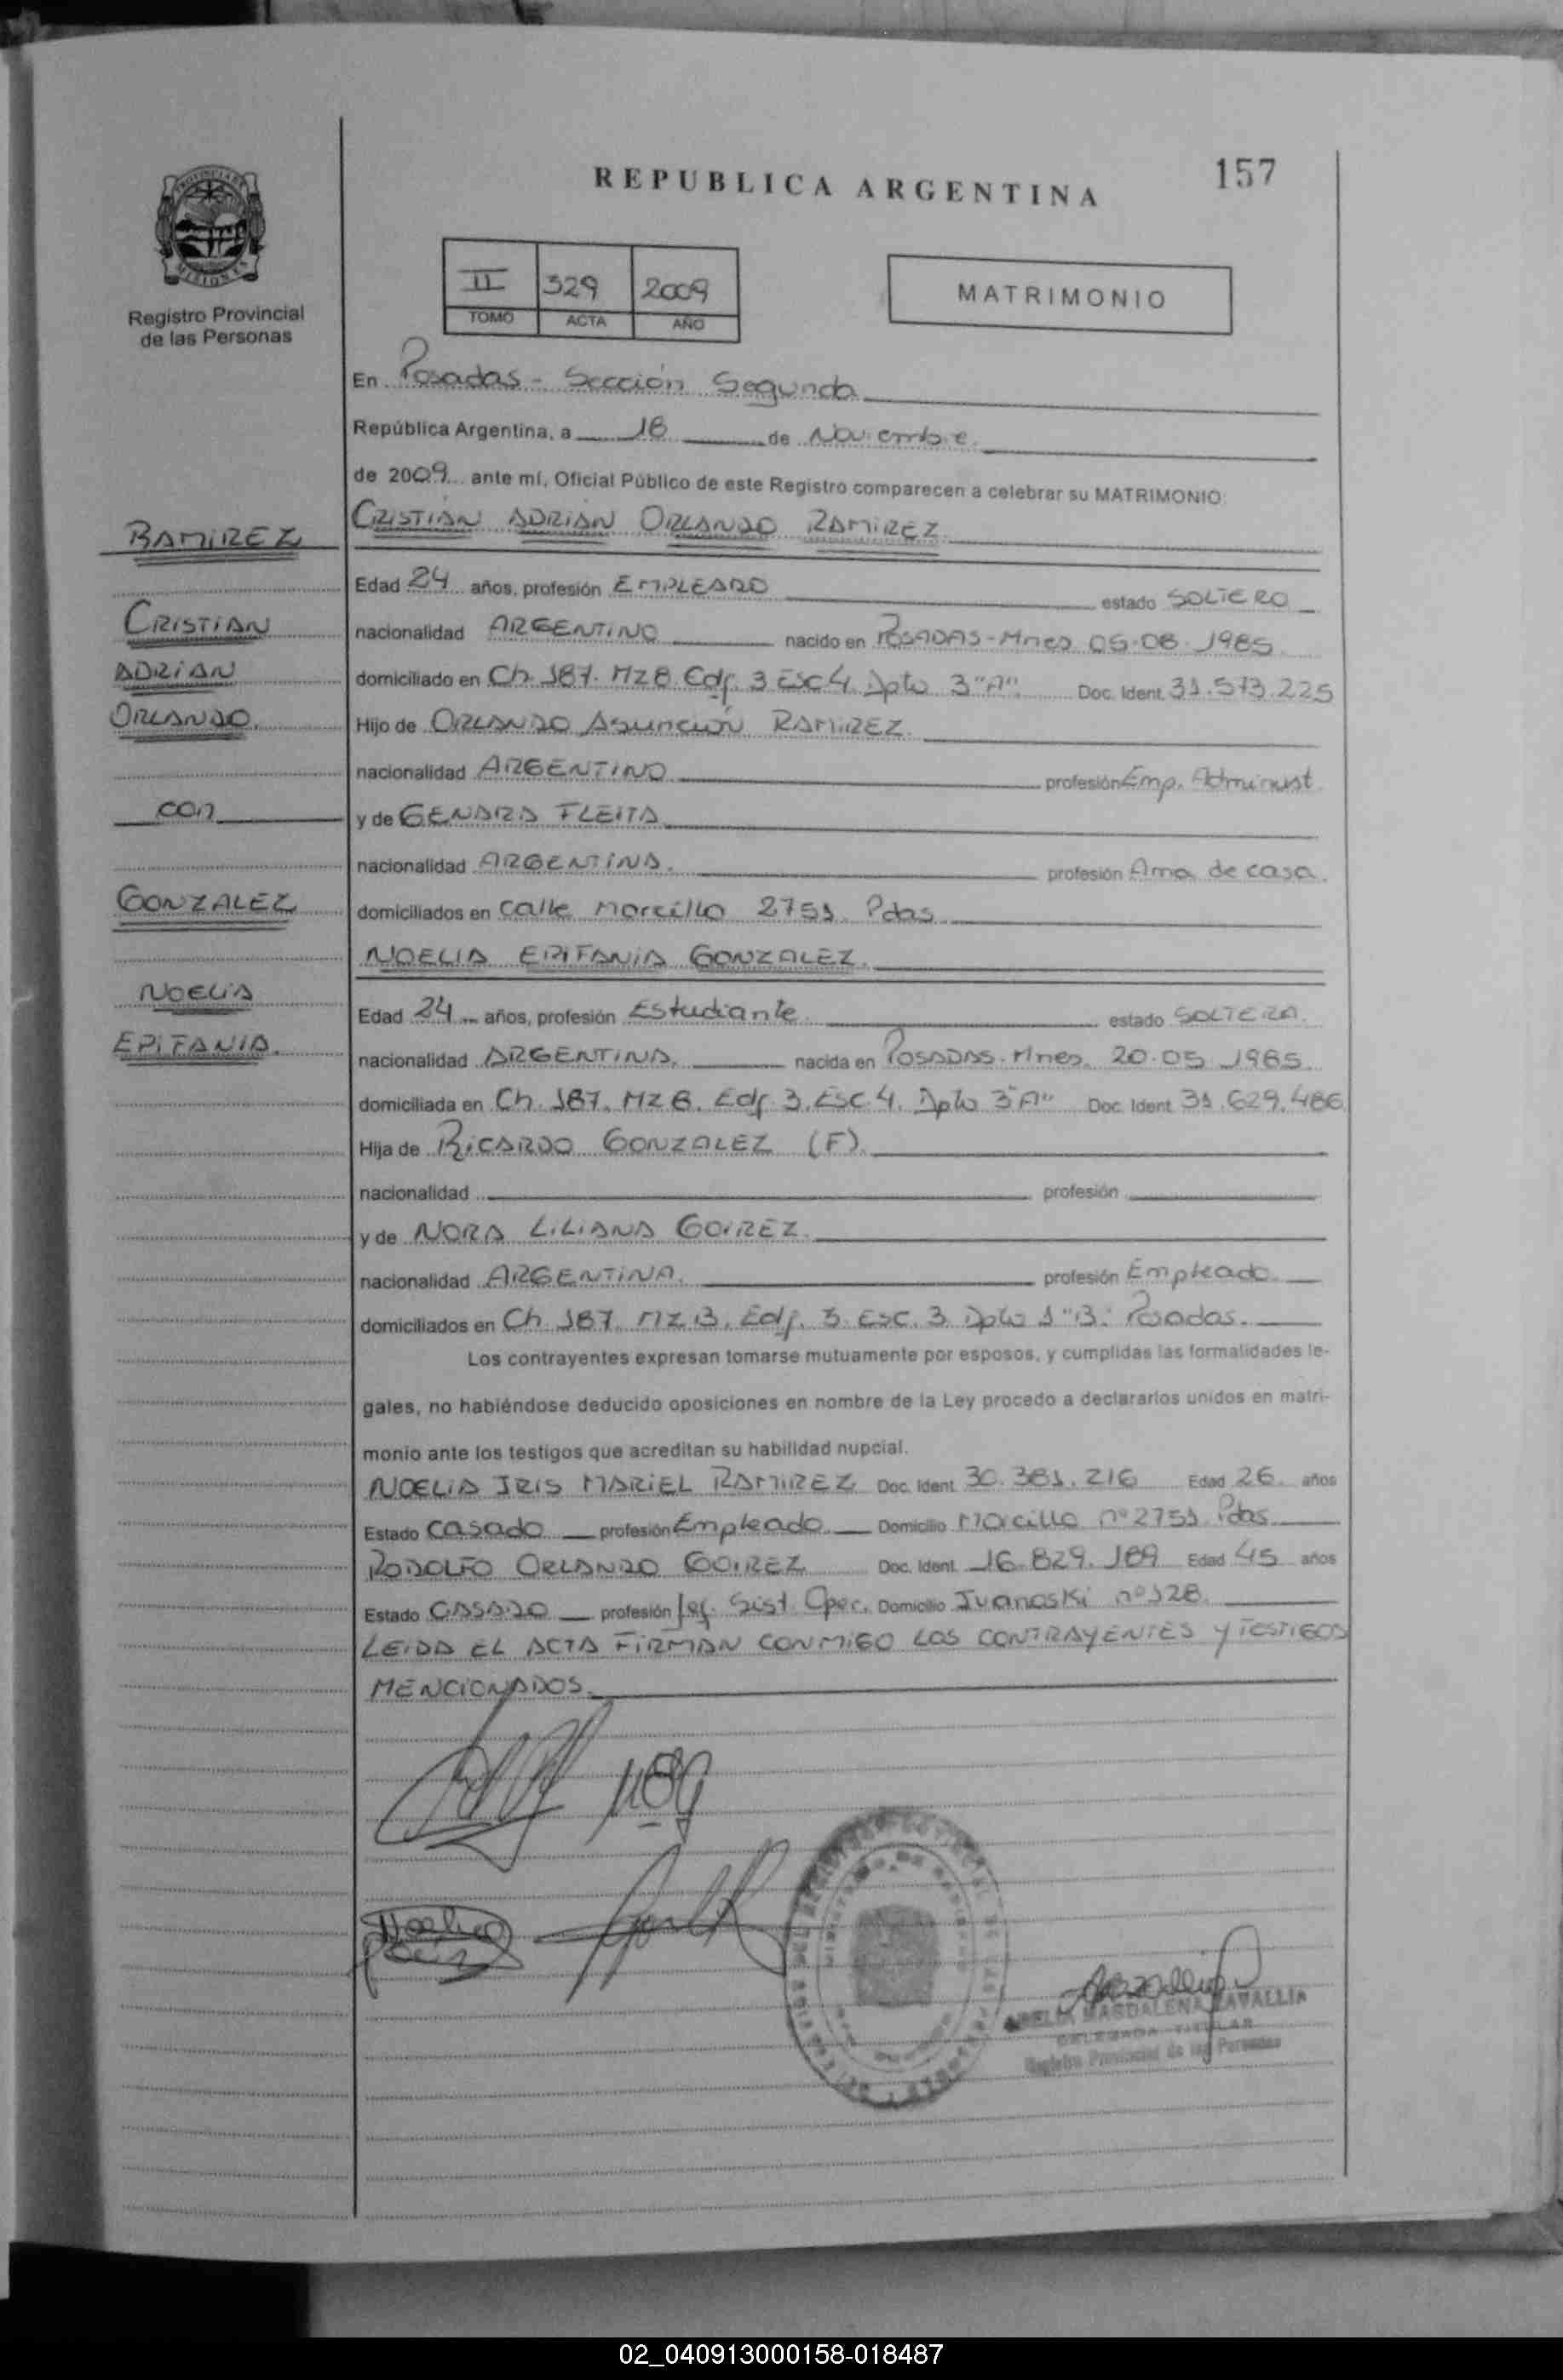 REPUBLICA ARGENTINA
157
PROVINCIA DE
MISIONES
Registro Provincial
de las Personas
II 329 2009
TOMO ACTA AÑO
MATRIMONIO
En Posadas - Sección Segunda
República Argentina, a 18 de Noviembre
de 2009 ante mí, Oficial Público de este Registro comparecen a celebrar su MATRIMONIO:
RAMIREZ
CRISTIAN ADRIAN ORLANDO RAMIREZ
Edad 24 años, profesión EMPLEADO estado SOLTERO
CRISTIAN
nacionalidad ARGENTINO nacido en POSADAS-Mnes 05-08-1985
ADRIAN
domiciliado en Ch. 187. Mz B. Edf. 3 Esc 4 Dpto 3"A". Doc. Ident. 31.573.225
ORLANDO.
Hijo de ORLANDO Asunción RAMIREZ.
nacionalidad ARGENTINO profesión Emp. Administ.
con
y de GENARA FLEITA
nacionalidad ARGENTINA. profesión Ama de casa.
GONZALEZ
domiciliados en calle Morcillo 2751 Pdas
NOELIA EPIFANIA GONZALEZ.
NOELIA
Edad 24 años, profesión Estudiante estado SOLTERA.
EPIFANIA.
nacionalidad ARGENTINA. nacida en POSADAS-Mnes. 20-05-1985.
domiciliada en Ch. 187. Mz B. Edf. 3. Esc. 4. Dpto 3"A" Doc. Ident. 31.629.486
Hija de RICARDO GONZALEZ (F).
nacionalidad profesión
y de NORA LILIANA GOIREZ.
nacionalidad ARGENTINA. profesión Empleado.
domiciliados en Ch. 187. Mz B. Edf. 3. Esc. 3 Dpto 1"B". Posadas.
Los contrayentes expresan tomarse mutuamente por esposos, y cumplidas las formalidades le-
gales, no habiéndose deducido oposiciones en nombre de la Ley procedo a declararlos unidos en matri-
monio ante los testigos que acreditan su habilidad nupcial.
NOELIA IRIS MARIEL RAMIREZ Doc. Ident. 30.381.216 Edad 26 años
Estado casado profesión Empleado Domicilio Morcillo nº 2751 Pdas.
RODOLFO ORLANDO GOIREZ Doc. Ident. 16.829.189 Edad 45 años
Estado CASADO profesión Jef. Sist. Oper. Domicilio Ivanoski nº 128.
LEIDA EL ACTA FIRMAN CONMIGO LOS CONTRAYENTES Y TESTIGOS
MENCIONADOS.
MAGDALENA ZAVALLIA
DELEGADA TITULAR
Registro Provincial de las Personas
02_040913000158-018487